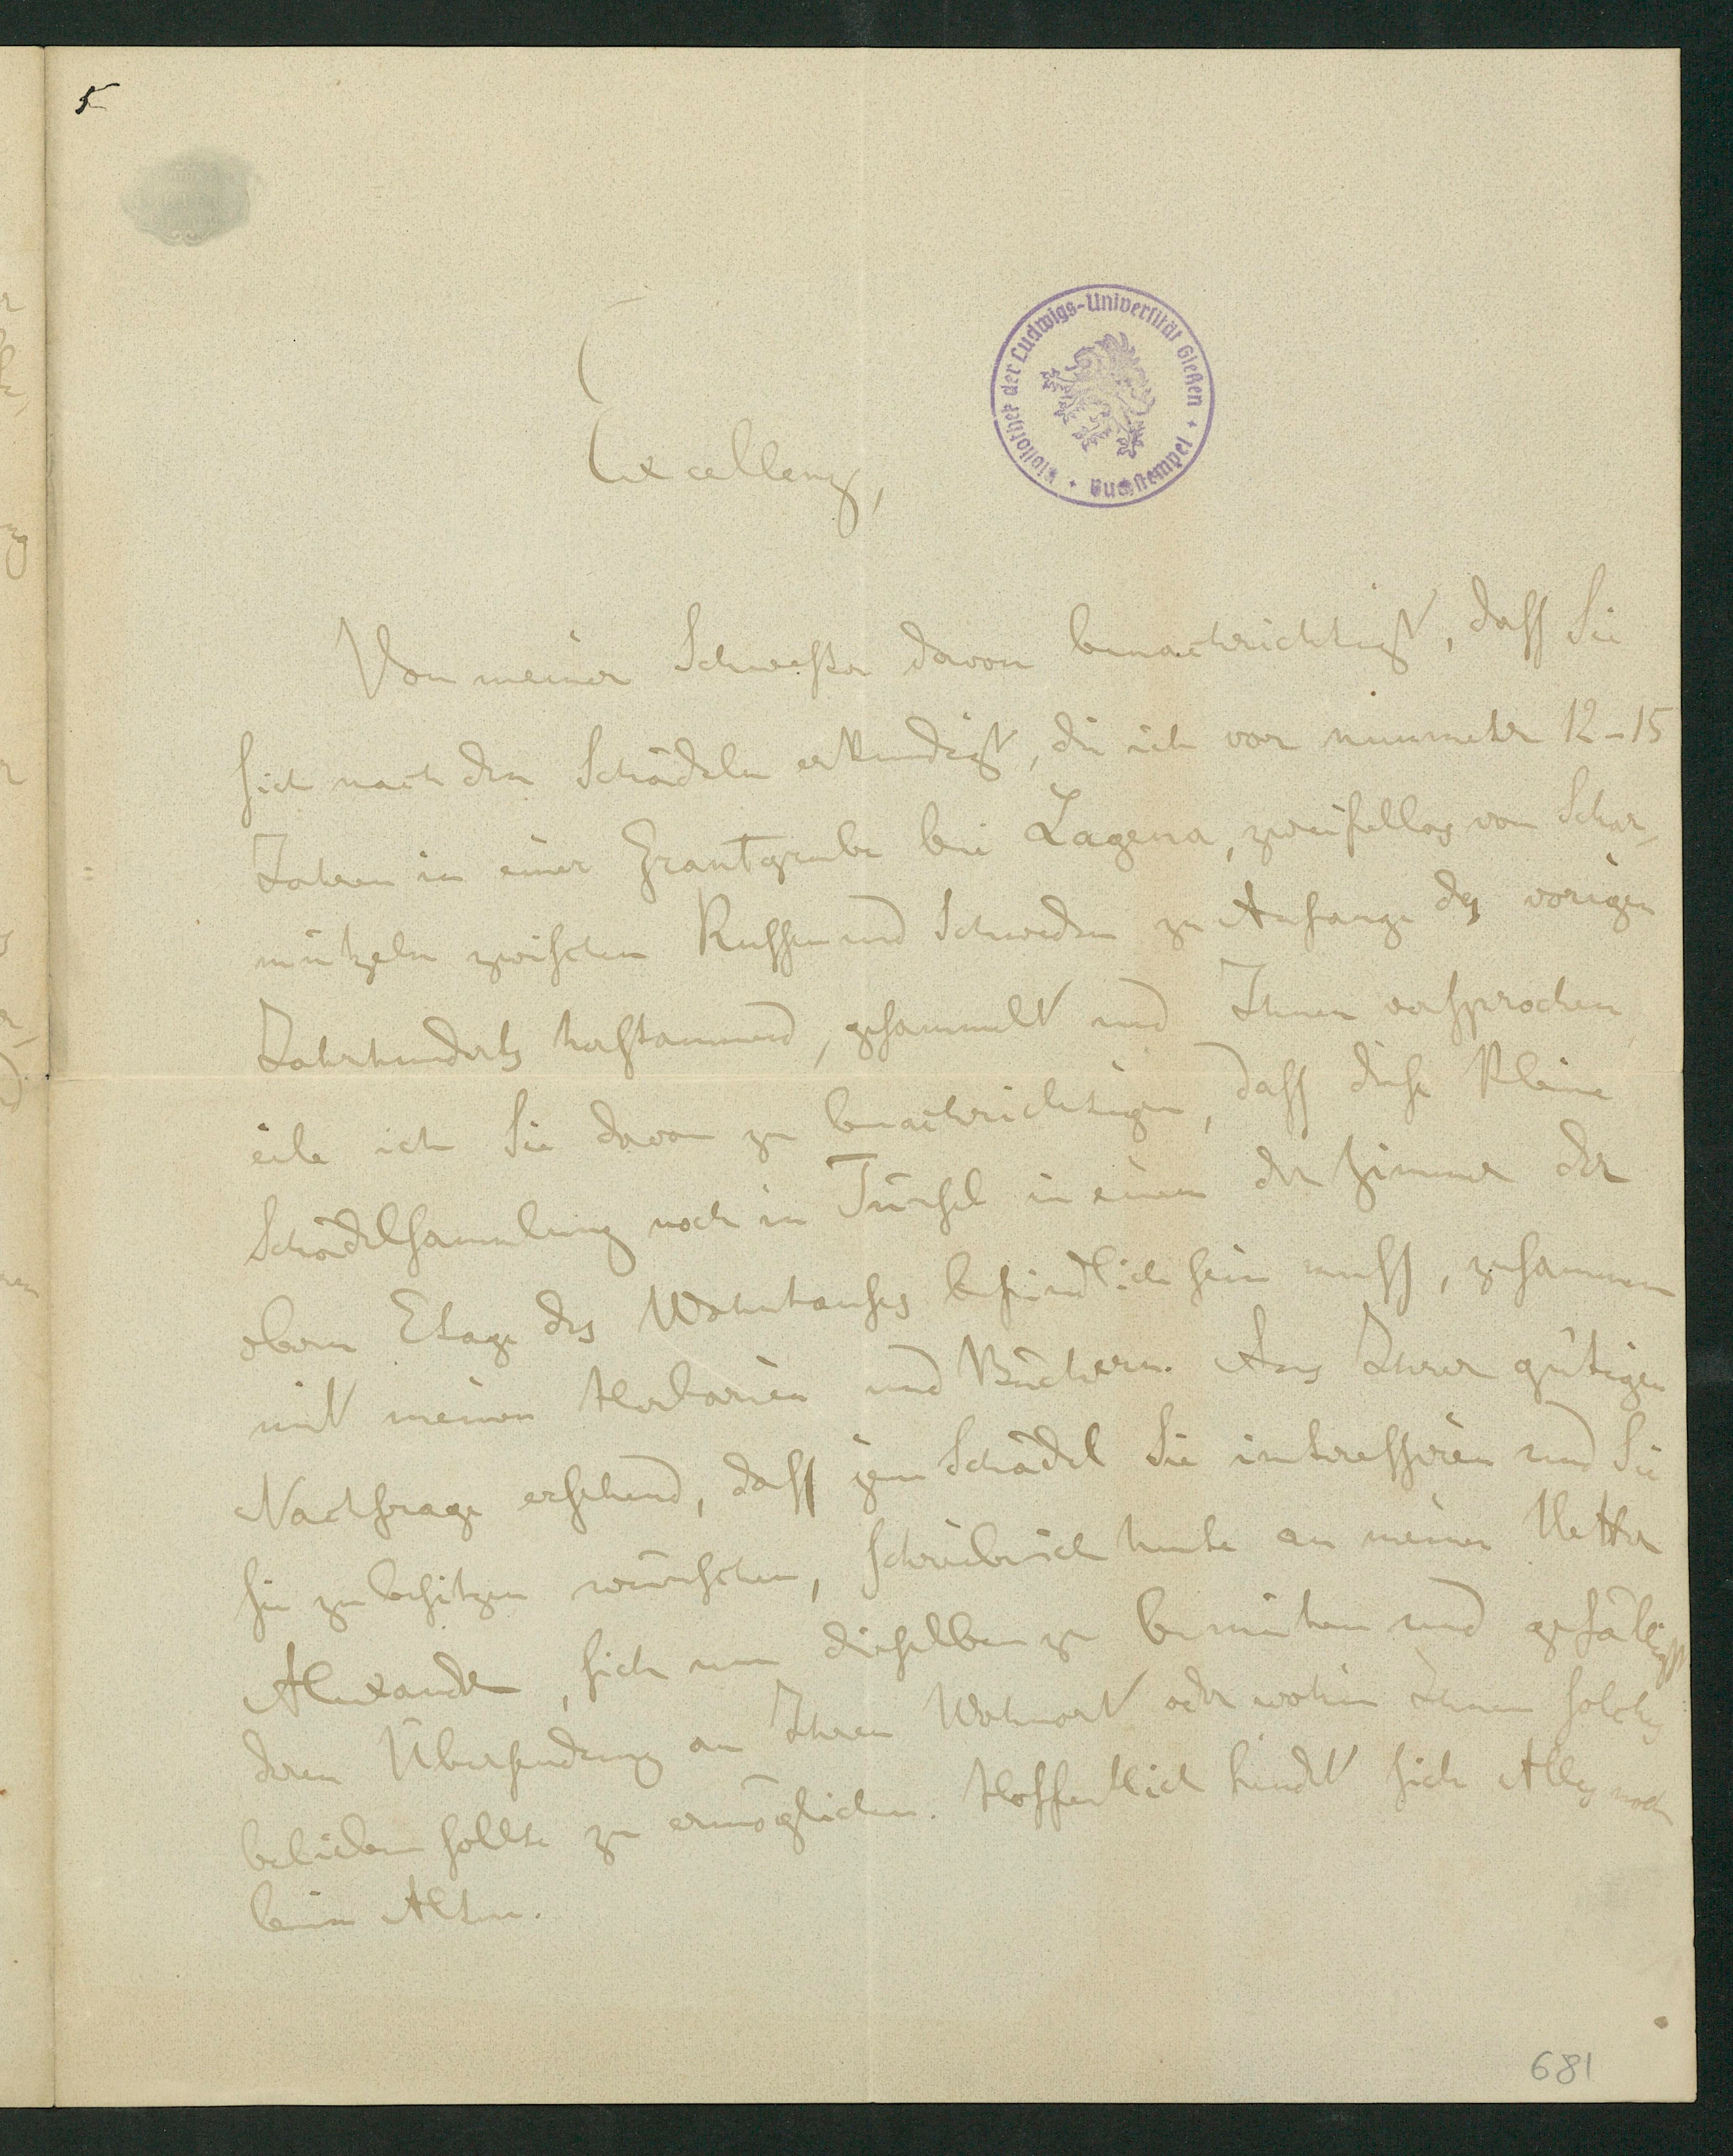 5
Bibliothek der Ludwigs-Universität Gießen + Buchstempel +
Excellenz,
Von meiner Schwester davon benachrichtigt, dass Sie
sich nach den Schädeln erkundigt, die ich vor nunmehr 12-15
Jahren in einer Grantgrube bei Lagena, zweifellos von Schar-
mützeln zwischen Russen und Schweden zu Anfange des vorigen
Jahrhunderts herstammend, gesammelt und Ihnen versprochen,
eile ich Sie davon zu benachrichtigen, dass diese kleine
Schädelsammlung noch in Türsel in einem der Zimmer der
obern Etage des Wohnhauses befindlich sein muss, zusammen
mit meinen Herbarien und Büchern. Aus Ihrer gütigen
Nachfrage ersehend, dass jene Schädel Sie interessiren und Sie
sie zu besitzen wünschen, schreibe ich heute an meinen Vetter
Alexander, sich um dieselben zu bemühen und gefälligst
deren Übersendung an Ihren Wohnort oder wohin Ihnen solches
belieben sollte zu ermöglichen. Hoffentlich findet sich Alles noch
beim Alten.
681